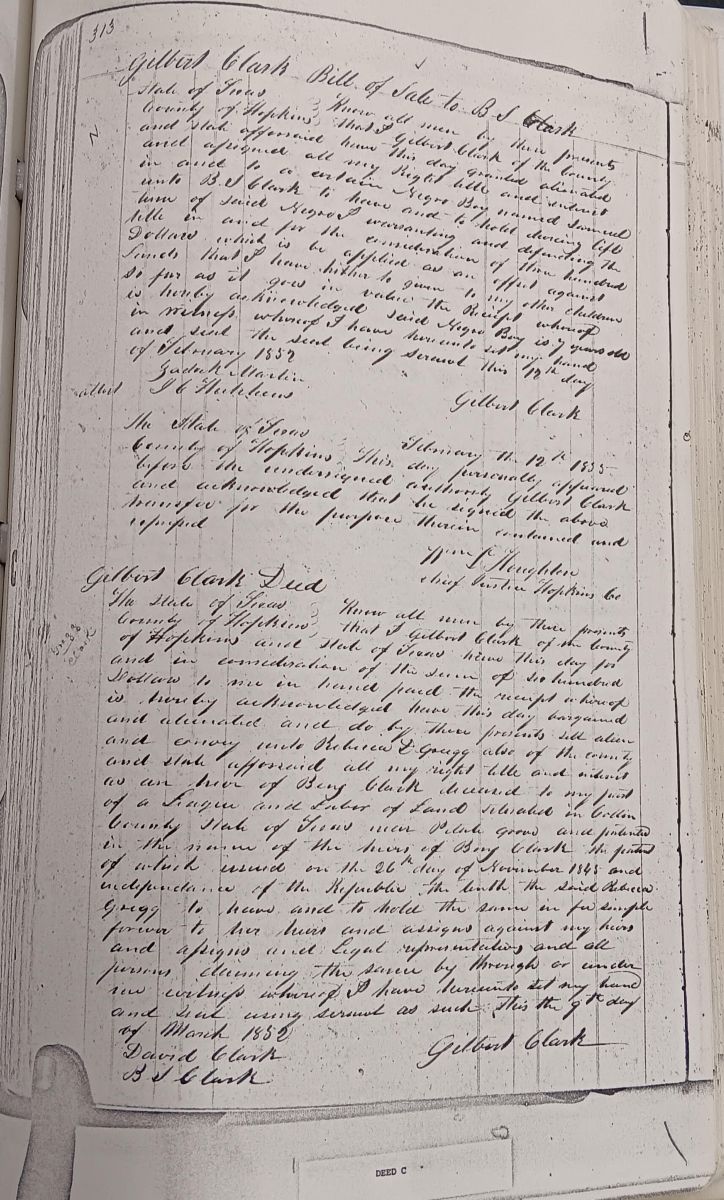 313
Gilbert Clark Bill of Sale to B S Clark
State of Texas
County of Hopkins Know all men by these presents
that I Gilbert Clark of the County
and state afforsaid have this day granted alienated
and assigned all my Right title and interest
in and to a certain Negro Boy named Samuel
unto B. S Clark to have and to hold during life
time of said Negro I warranting and defending the
title in and for the consideration of three hundred
Dollars which is be applied as an offset against
Lands that I have hither to given to my other children
so far as it goes in value the Receipt whereof
is hereby acknowledged said Negro Boy is 7 years old
in witness whereof I have hereunto set my hand
and seal the seal being scrawl this 12th day
of February 1852
Zadock Martin
attest J C Hutchens
Gilbert Clark
The State of Texas February the 12th 1855
County of Hopkins This day personally appeared
before the undersigned authority Gilbert Clark
and acknowledged that he signed the above
transfer for the purpose therein contained and
Wm L Houghton
Chief Justice Hopkins Co
Gilbert Clark Deed
The State of Texas
County of Hopkins Know all men by these presents
that I Gilbert Clark of the County
of Hopkins and State of Texas have this day for
and in consideration of the sum of six hundred
Dollars to me in hand paid the receipt whereof
is hereby acknowledged have this day bargained
and alienated and do by these presents sell alien
and convey unto Rebecca D Gregg also of the county
and state afforsaid all my right title and interest
as an heir of Benj Clark deceased to my part
of a League and Labor of Land situated in Collin
County State of Texas near grove and patented
in the name of the heirs of Benj Clark the patent
of which issued on the 26th day of November 1845 and
independance of the Republic the tenth the said Rebecca
Gregg to have and to hold the same in fee simple
forever to her heirs and assigns against my heirs
and assigns and Legal representatives and all
persons claiming the same by through or under
me witness whereof I have hereunto set my hand
and seal using scrawl as such this the 9th day
of March 1852
David Clark
Gilbert Clark
B S Clark
DEED C